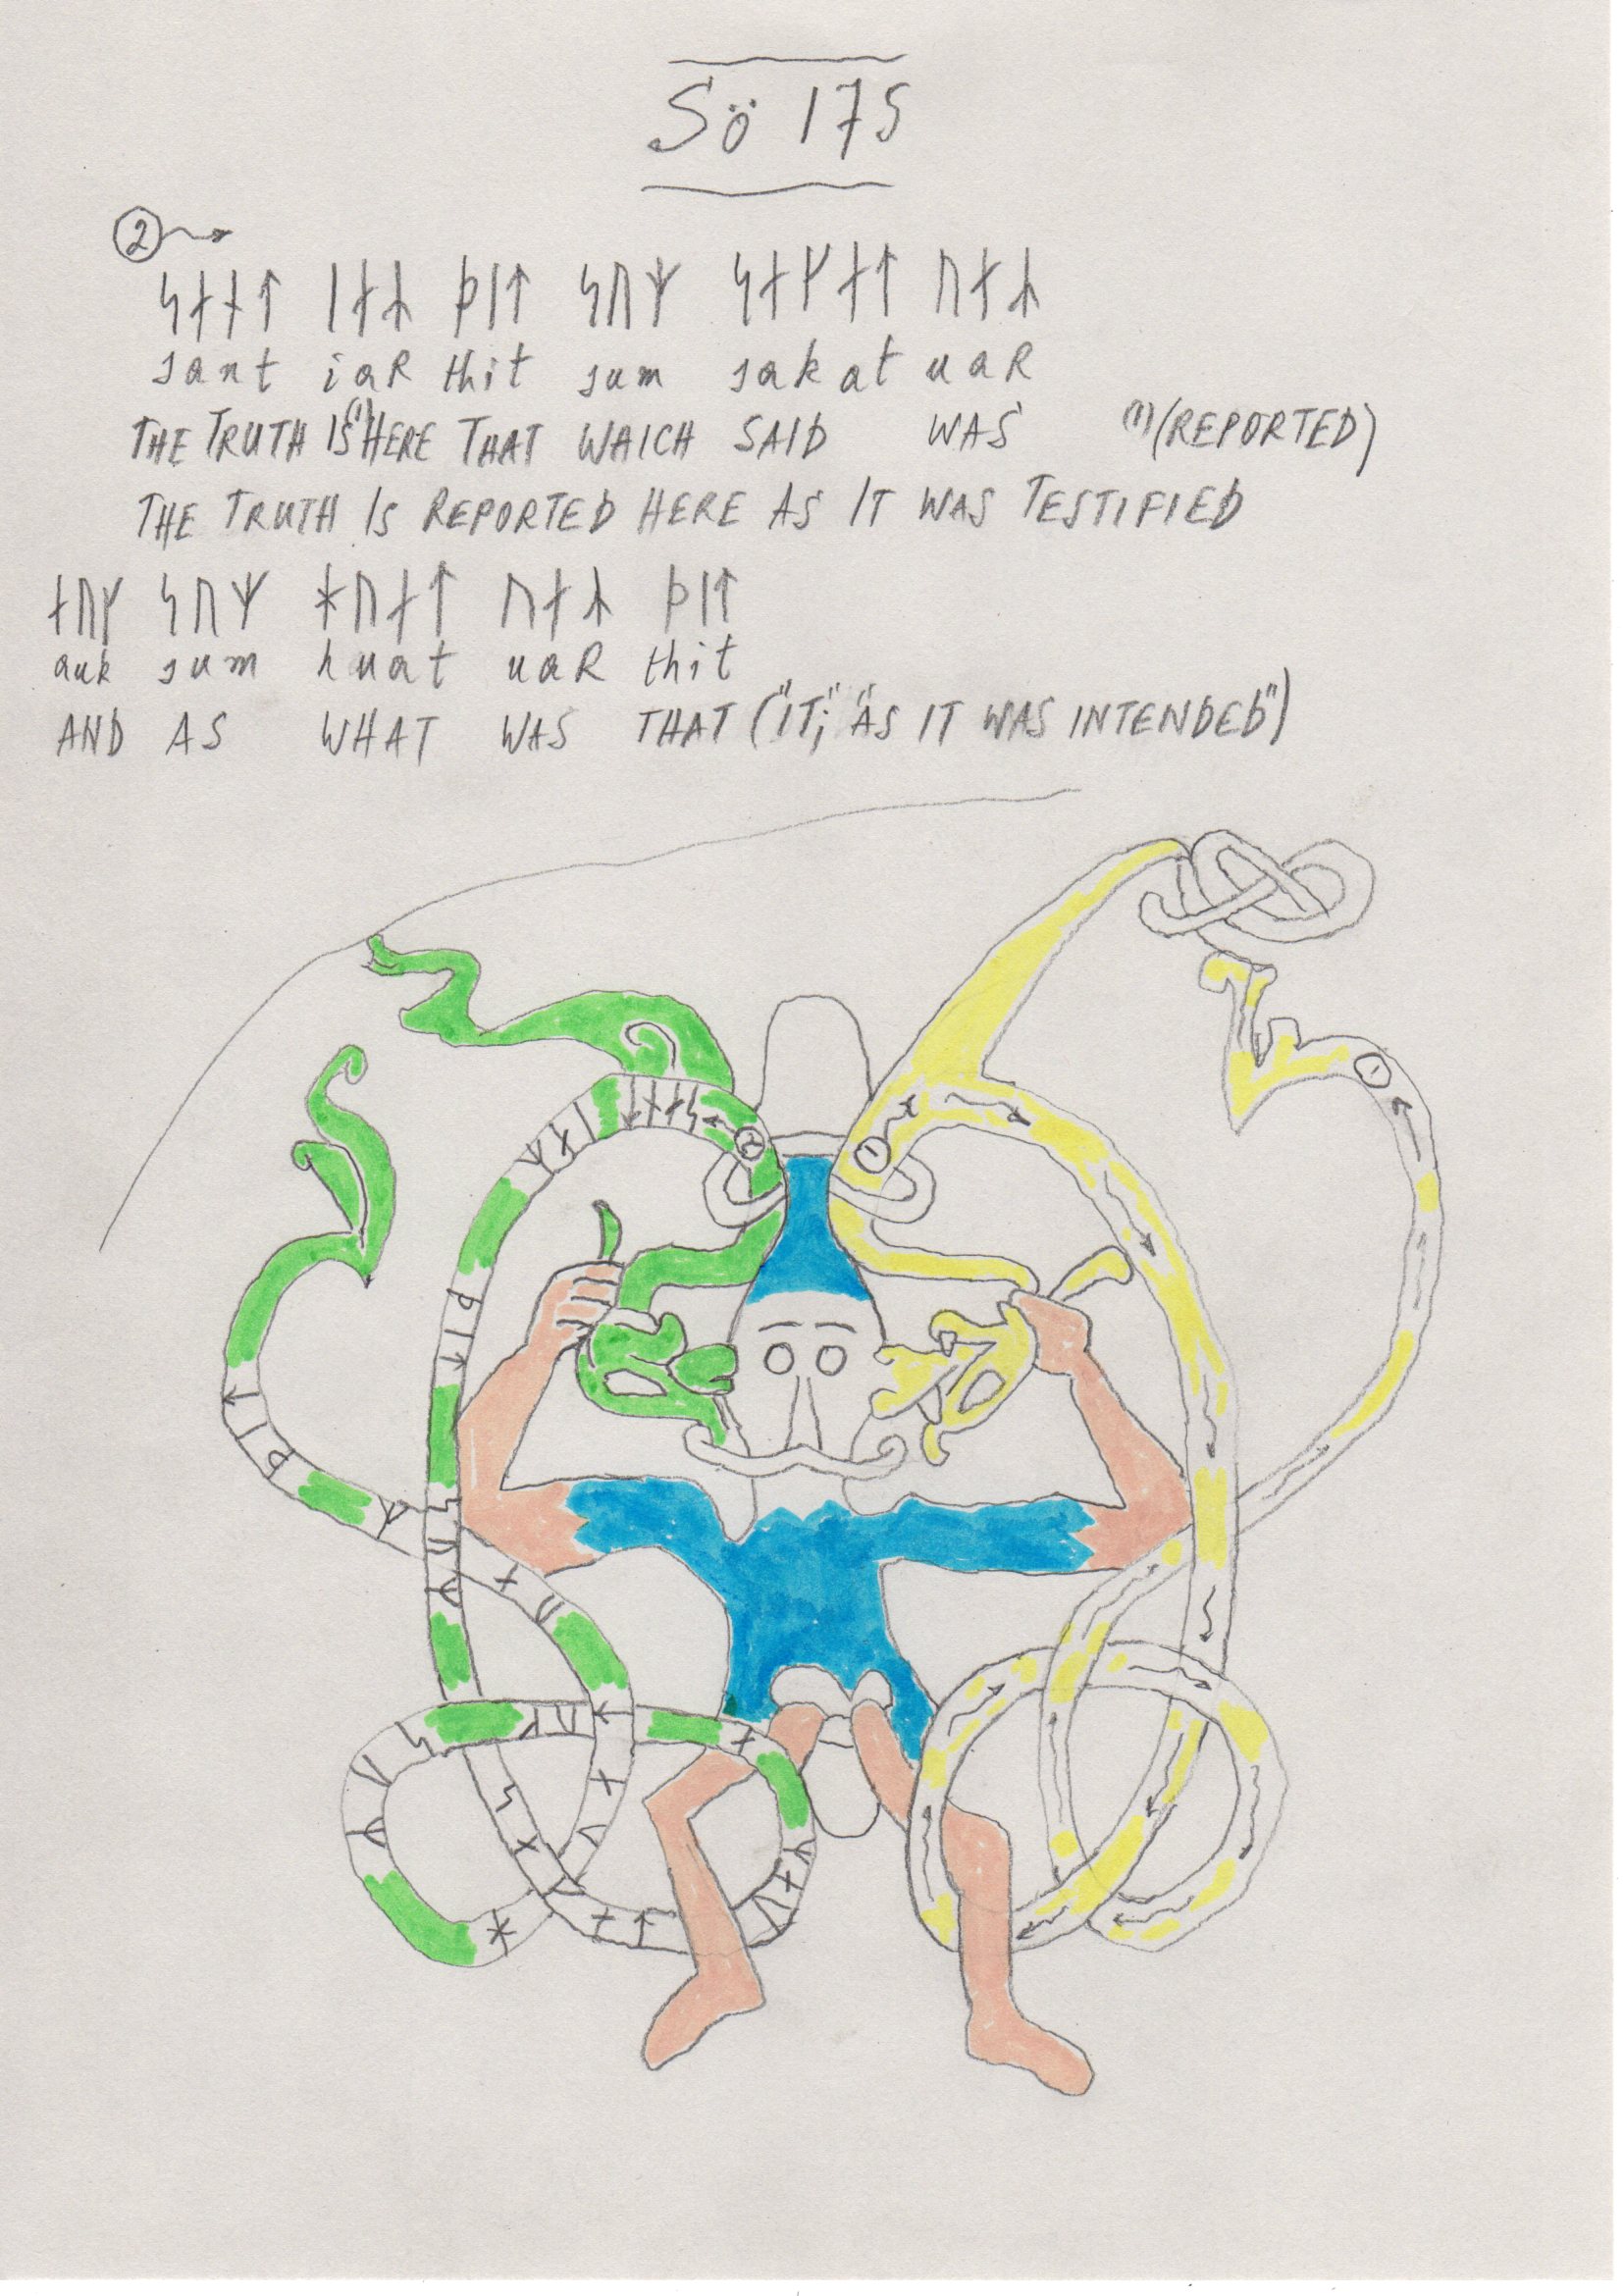 Sö 175
2
ᛋᛅᚾᛏ ᛁᛅᛦ ᚦᛁᛏ ᛋᚢᛘ ᛋᛅᚴᛅᛏ ᚢᛅᛦ
sant iaR thit sum sakat uaR
THE TRUTH IS (1) HERE THAT WHICH SAID WAS (1) (REPORTED)
THE TRUTH IS REPORTED HERE AS IT WAS TESTIFIED
ᛅᚢᚴ ᛋᚢᛘ ᚼᚢᛅᛏ ᚢᛅᛦ ᚦᛁᛏ
auk sum huat uaR thit
AND AS WHAT WAS THAT ("IT;" "AS IT WAS INTENDED")
1
2
1